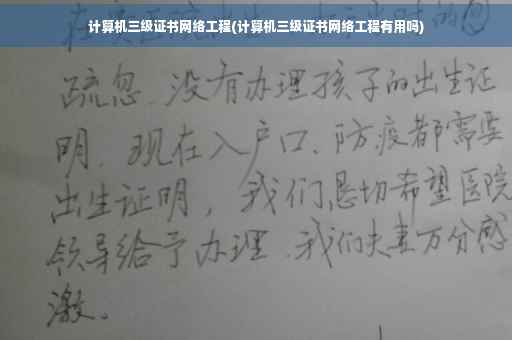 计算机三级证书网络工程(计算机三级证书网络工程有用吗)
在
疏忽.没有办理孩子的出生证
明.现在入户口、防疫都需要
出生证明，我们恳切希望医院
领导给予办理.我们夫妻万分感
激。